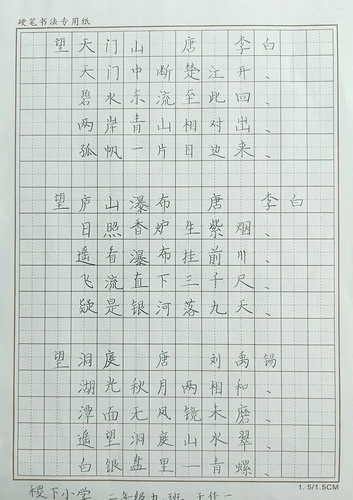 硬笔书法专用纸
望天门山 唐 李白
天门中断楚江开、
碧水东流至此回、
两岸青山相对出、
孤帆一片日边来、
望庐山瀑布 唐 李白
日照香炉生紫烟、
遥看瀑布挂前川、
飞流直下三千尺、
疑是银河落九天、
望洞庭 唐 刘禹锡
湖光秋月两相和、
潭面无风镜未磨、
遥望洞庭山水翠、
白银盘里一青螺、
1.5/1.5CM
稷下小学 二年级九班